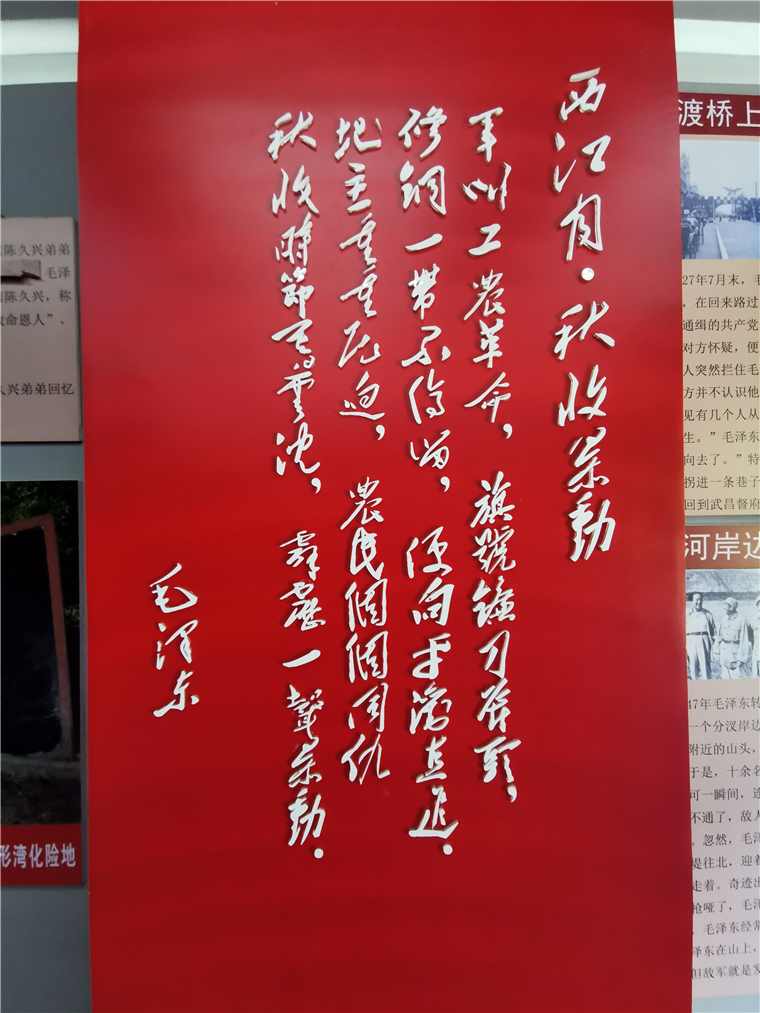 西江月·秋收暴動
军叫工農革命，旗號鐮刀斧頭，
修銅一帶不停留，便向平瀏直進．
地主重重压迫，農民個個同仇
秋收時節暮雲沈，霹靂一聲暴動．
毛泽东
陈久兴弟弟
毛泽
陈久兴，称
救命恩人”。
久兴弟弟回忆
形湾化险地
渡桥上
27年7月末，毛
，在回来路过
通缉的共产党
对方怀疑，便
人突然拦住毛
方并不认识他
见有几个人从
生。”毛泽东
向去了。”特
拐进一条巷子
回到武昌督府
河岸边
47年毛泽东转
一个分汊岸边
附近的山头，
于是，十余名
可一瞬间，连
不通了，敌人
。忽然，毛泽
是往北，迎着
走着。奇迹出
枪哑了，毛泽
毛泽东经常
泽东在山上，
但敌军就是发